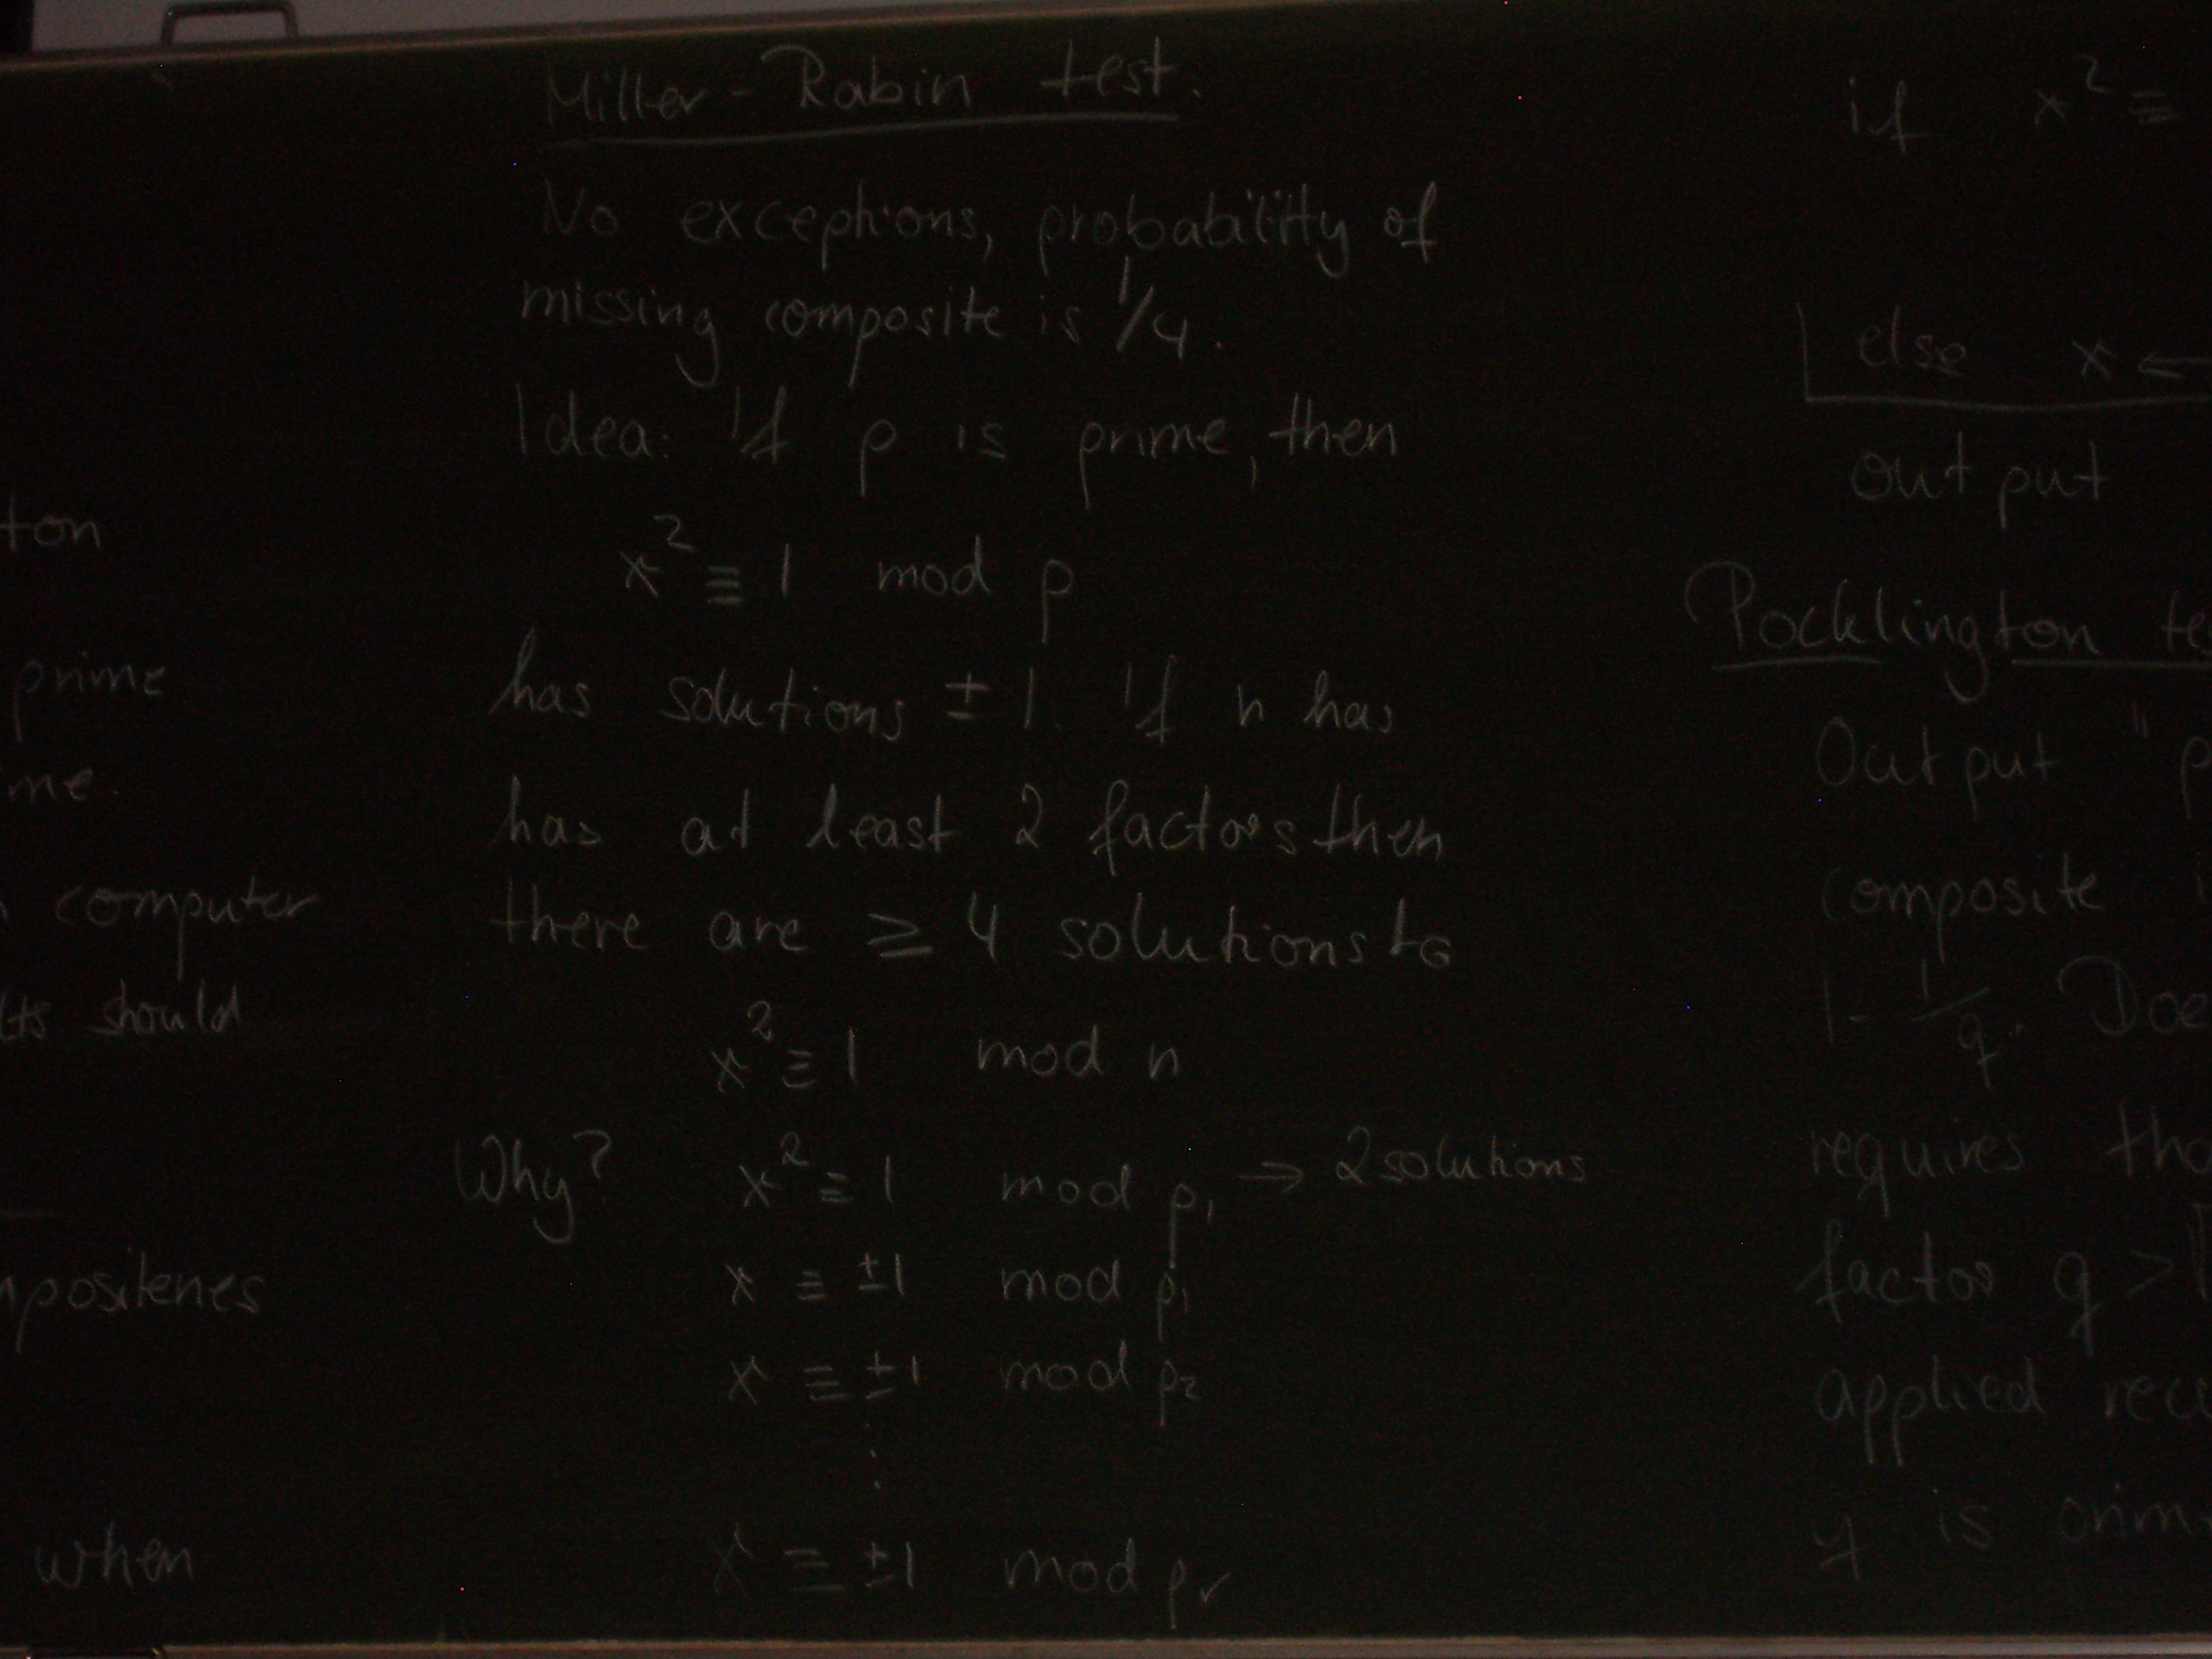 ton
prime
me.
computer
lts should
mpositenes
when
Miller-Rabin test.
No exceptions, probability of
missing composite is 1/4.
Idea: If p is prime, then
x² ≡ 1 mod p
has solutions ± 1. If n has
has at least 2 factors then
there are ≥ 4 solutions to
x² ≡ 1 mod n
Why? x² ≡ 1 mod p₁ → 2 solutions
x ≡ ±1 mod p₁
x ≡ ±1 mod p₂
⋮
x ≡ ±1 mod pᵣ
if x² ≡
else x ←
output
Pocklington te
Output "p
composite i
1 - 1/q. Doe
requires tha
factor q >
applied recu
is prim